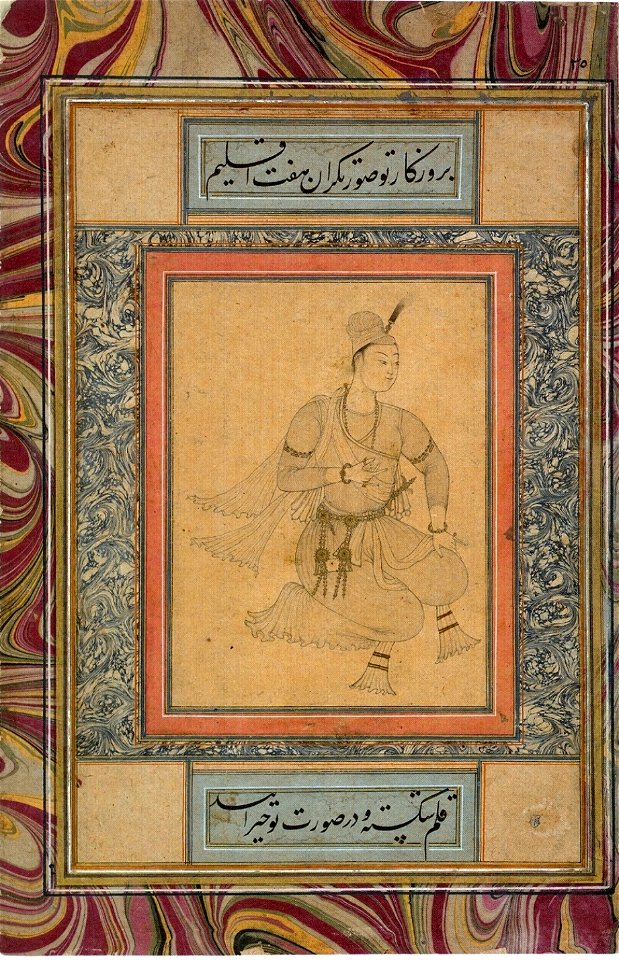 بروزکار تو صورتکران هفت اقلیم
قلم شکسته و در صورت تو حیرانند